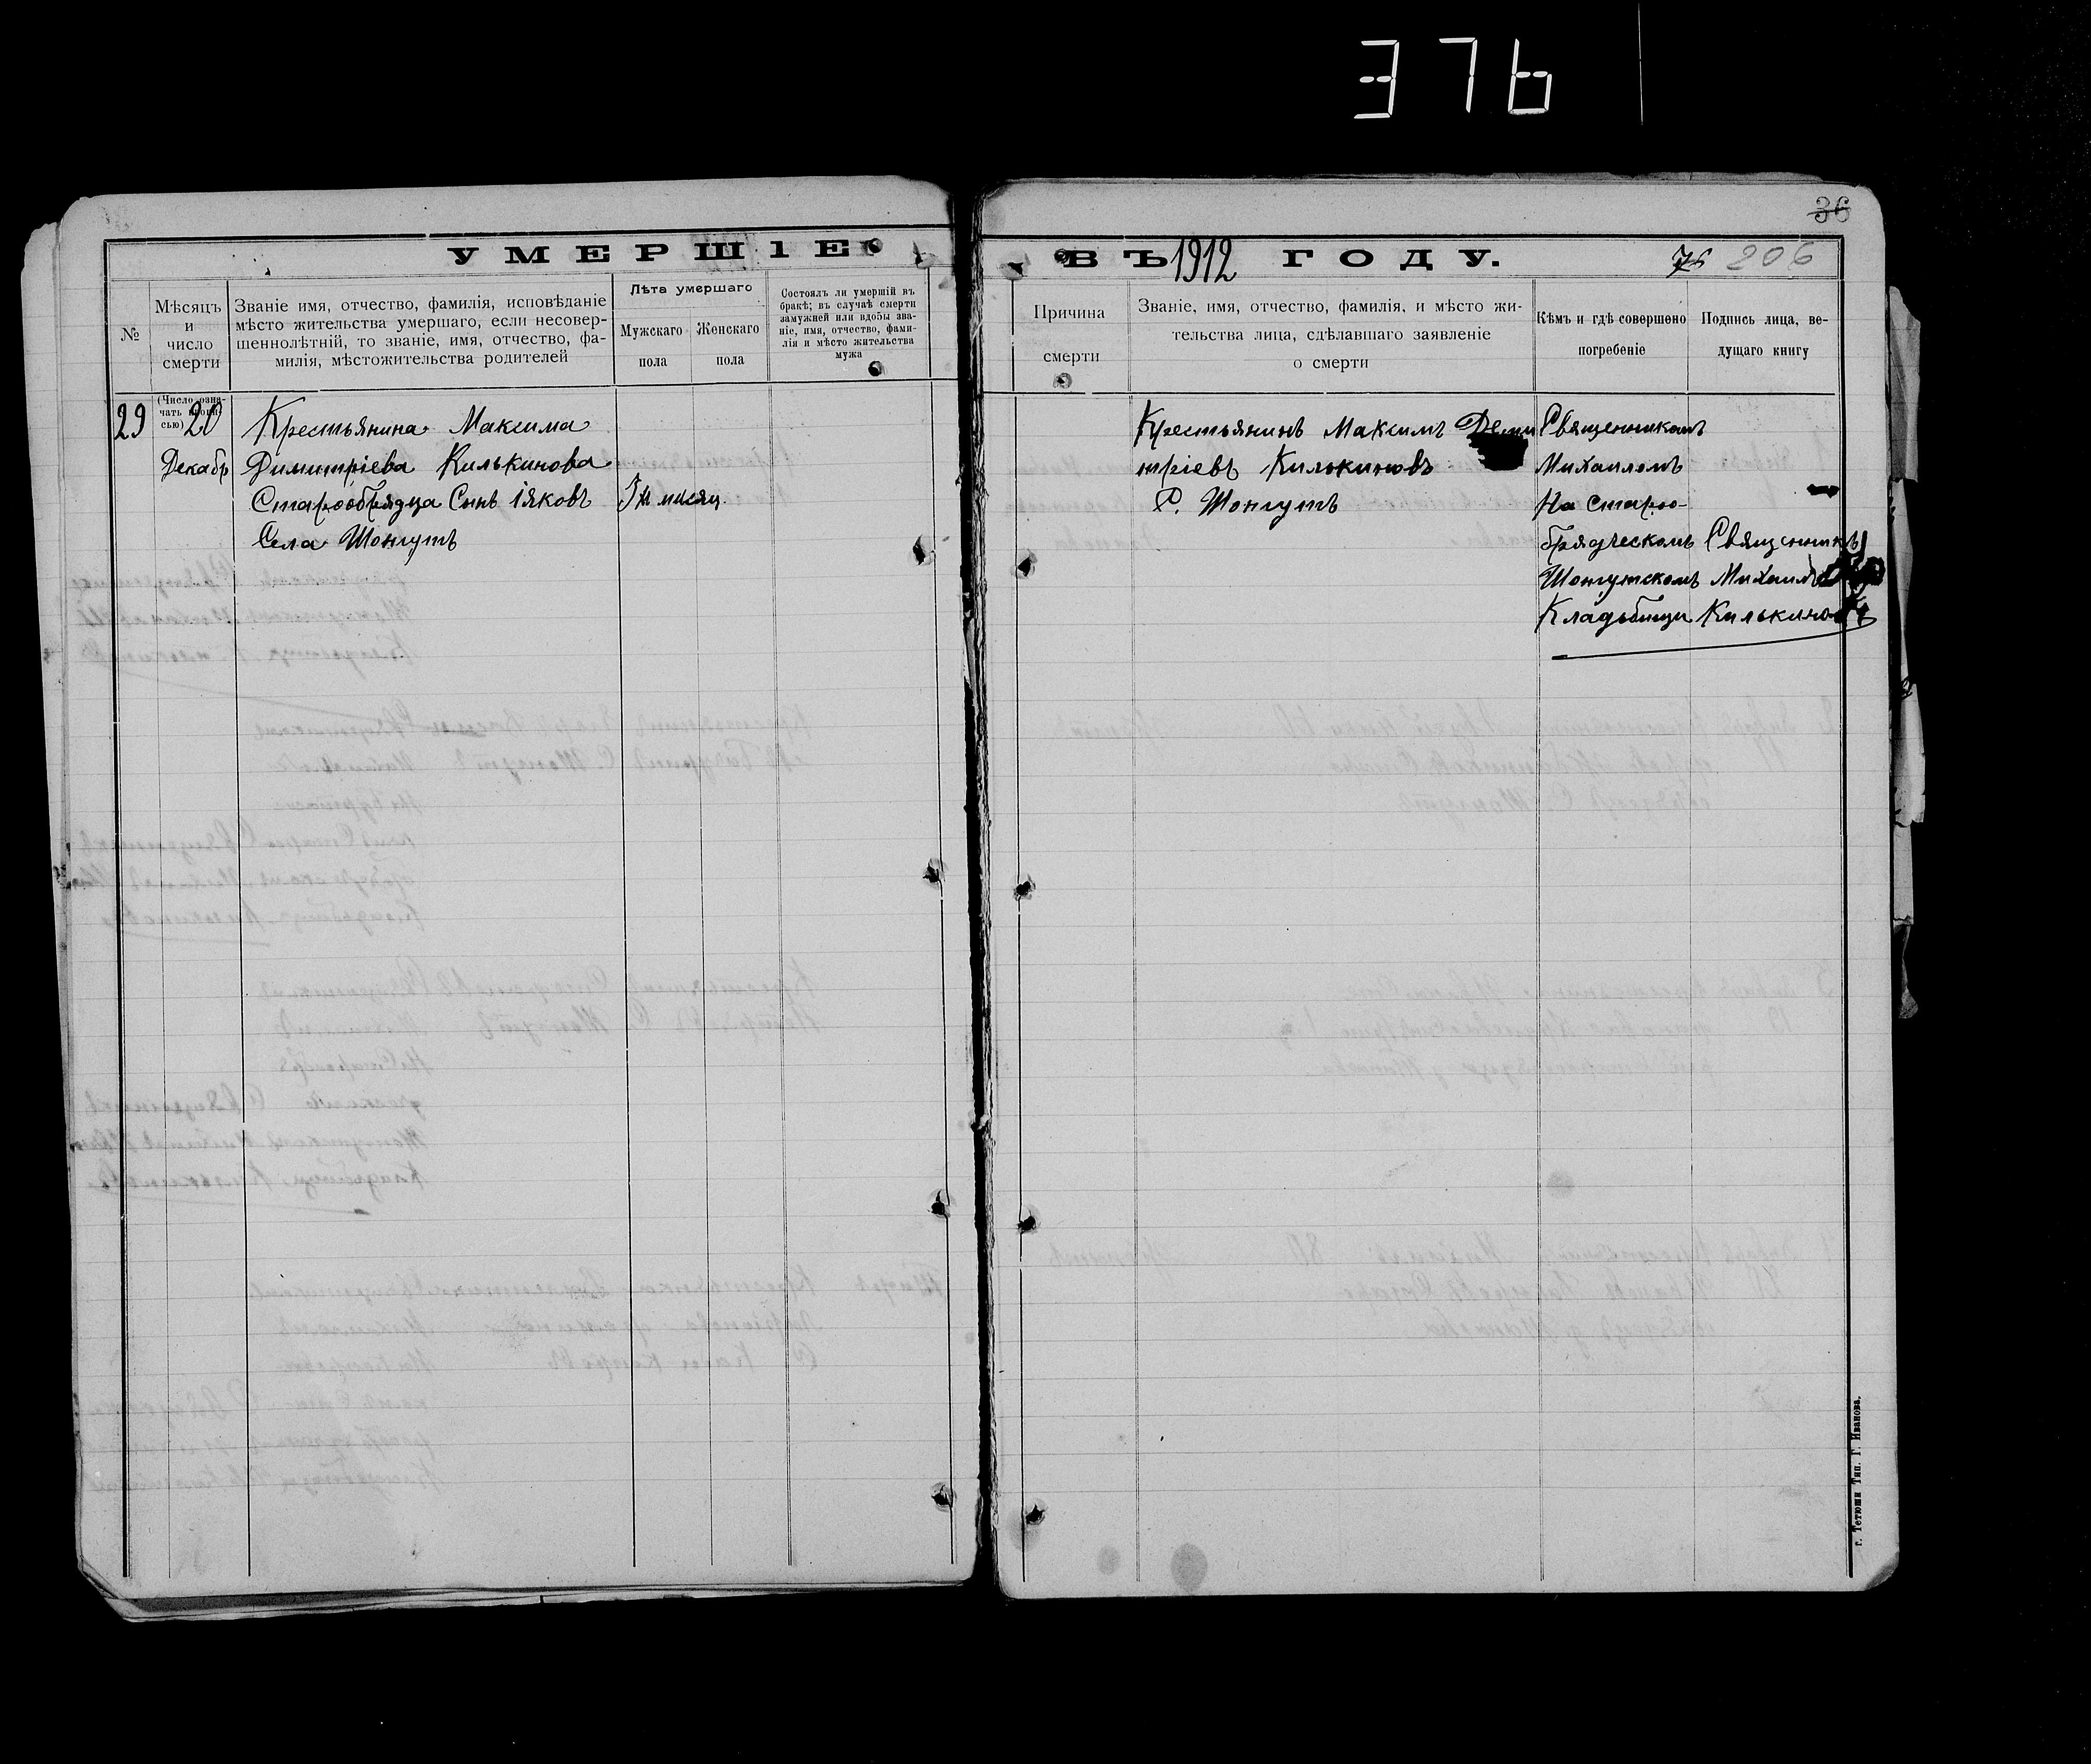 376
36
УМЕРШІЕ
ВЪ 1912 ГОДУ.
76 206
№
Мѣсяцъ
и
число
смерти
Званіе имя, отчество, фамилія, исповѣданіе
мѣсто жительства умершаго, если несовер-
шеннолѣтній, то званіе, имя, отчество, фа-
милія, мѣстожительства родителей
Лѣта умершаго
Мужскаго
пола
Женскаго
пола
Состоялъ ли умершій въ
бракѣ; въ случаѣ смерти
замужней или вдовы зва-
ніе, имя, отчество, фами-
лія и мѣсто жительства
мужа
Причина
смерти
Званіе, имя, отчество, фамилія, и мѣсто жи-
тельства лица, сдѣлавшаго заявленіе
о смерти
Кѣмъ и гдѣ совершено
погребеніе
Подпись лица, ве-
дущаго книгу
(Число озна-
чать пропи-
сью)
29
20
Декабр
Крестьянина Максима
Димитріева Килькинова
Старообрядца Сынъ Іяковъ
Села Шонгутъ
мисяц.
Крестьянинъ Максимъ Деми
тріевъ Килькиновъ
С. Шонгутъ
Священникомъ
Михаиломъ
На Старо-
брядческомъ
Шонгутскомъ
Кладьбищи
Священникъ
Михаилъ
Килькиновъ
г. Тетюши Тип. Г. Иванова.